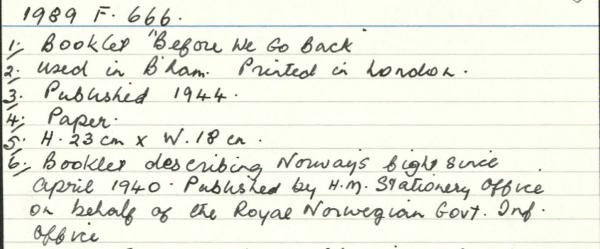 1989 F. 666.
1, Booklet "Before We Go Back"
2. Used in B'ham. Printed in London.
3. Published 1944.
4, Paper.
5. H. 23 cm x W. 18 cm.
6, Booklet describing Norway's fight since
April 1940. Published by H.M. Stationery Office
on behalf of the Royal Norwegian Govt. Inf.
Office